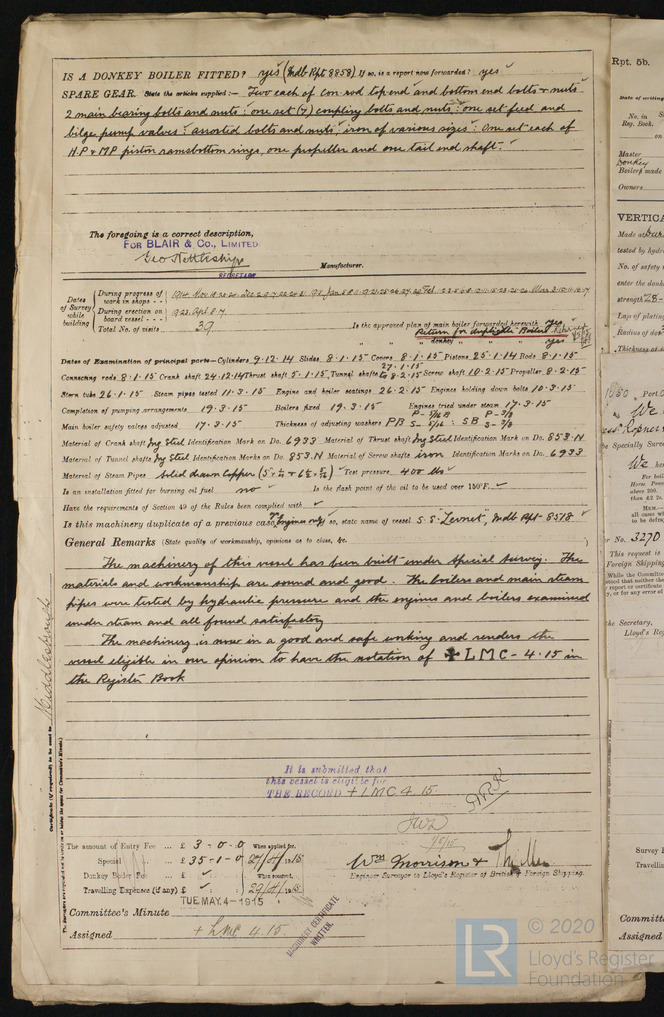 IS A DONKEY BOILER FITTED? yes (Mdb Rpt 8858) If so, is a report now forwarded? yes
SPARE GEAR. State the articles supplied:— Two each of con-rod top end and bottom end bolts & nuts
2 main bearing bolts and nuts: one set (7) coupling bolts and nuts: one set feed and
bilge pump valves: assorted bolts and nuts, iron of various sizes: One set each of
H.P & MP piston ramsbottom rings, one propeller and one tail end shaft.
The foregoing is a correct description,
FOR BLAIR & Co., LIMITED
Geo Nettleship
SECRETARY
Manufacturer.
Dates of Survey while building
During progress of work in shops - -
During erection on board vessel - - -
Total No. of visits 39
Is the approved plan of main boiler forwarded herewith yes
Return for duplicate Boiler
" " " donkey " " " yes
Dates of Examination of principal parts—Cylinders 9.12.14 Slides 8.1.15 Covers 8.1.15 Pistons 25.1.14 Rods 8.1.15
Connecting rods 8.1.15 Crank shaft 24.12.14 Thrust shaft 5.1.15 Tunnel shafts 27.1.15 to 8.2.15 Screw shaft 10.2.15 Propeller 8.2.15
Stern tube 26.1.15 Steam pipes tested 11.3.15 Engine and boiler seatings 26.2.15 Engines holding down bolts 10.3.15
Completion of pumping arrangements 19.3.15 Boilers fixed 19.3.15 Engines tried under steam 17.3.15
Main boiler safety valves adjusted 17.3.15 Thickness of adjusting washers PB SB
Material of Crank shaft Ing Steel Identification Mark on Do. 6933 Material of Thrust shaft Ing Steel Identification Mark on Do. 853.N
Material of Tunnel shafts Ing Steel Identification Marks on Do. 853.N Material of Screw shafts iron Identification Marks on Do. 6933
Material of Steam Pipes Solid drawn Copper Test pressure 400 lbs
Is an installation fitted for burning oil fuel no Is the flash point of the oil to be used over 150°F.
Have the requirements of Section 49 of the Rules been complied with
Is this machinery duplicate of a previous case (Engines only) If so, state name of vessel S.S. "Zermet", Mdb Rpt 8578
General Remarks (State quality of workmanship, opinions as to class, &c.
The machinery of this vessel has been built under special survey. The
materials and workmanship are sound and good. The boilers and main steam
pipes were tested by hydraulic pressure and the engines and boilers examined
under steam and all found satisfactory
The machinery is now in a good and safe working and renders the
vessel eligible in our opinion to have the notation of + LMC - 4.15 in
the Register Book
Middlesbrough
It is submitted that
this vessel is eligible for
THE RECORD + LMC 4.15.
The amount of Entry Fee ... £ 3 - 0 - 0 When applied for,
Special ... £ 35 - 1 - 0 27/4/1915
Donkey Boiler Fee ... £ When received,
Travelling Expenses (if any) £ 29/4/1915
Wm Morrison &
Engineer Surveyor to Lloyd's Register of British & Foreign Shipping.
TUE. MAY. 4 - 1915
Committee's Minute
Assigned + LMC 4.15.
MACHINERY CERTIFICATE
WRITTEN.
Rpt. 5b.
Date of writing
No. in
Reg. Book.
on
Master
Donkey
Boilers made
Owners
VERTICA
Made at
tested by hydr
No. of safety
enter the donk
strength 28-
Lap of plating
Radius of do
Thickness of
Port
We
be Specially Surve
We
No. 3270
This request is
Foreign Shipping
the Secretary,
Lloyd's Reg
Survey F
Travellin
Committ
Assigned
LR © 2020
Lloyd's Register
Foundation